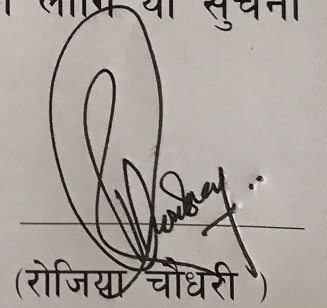 लागि यो सुचना
(रोजिया चौधरी)